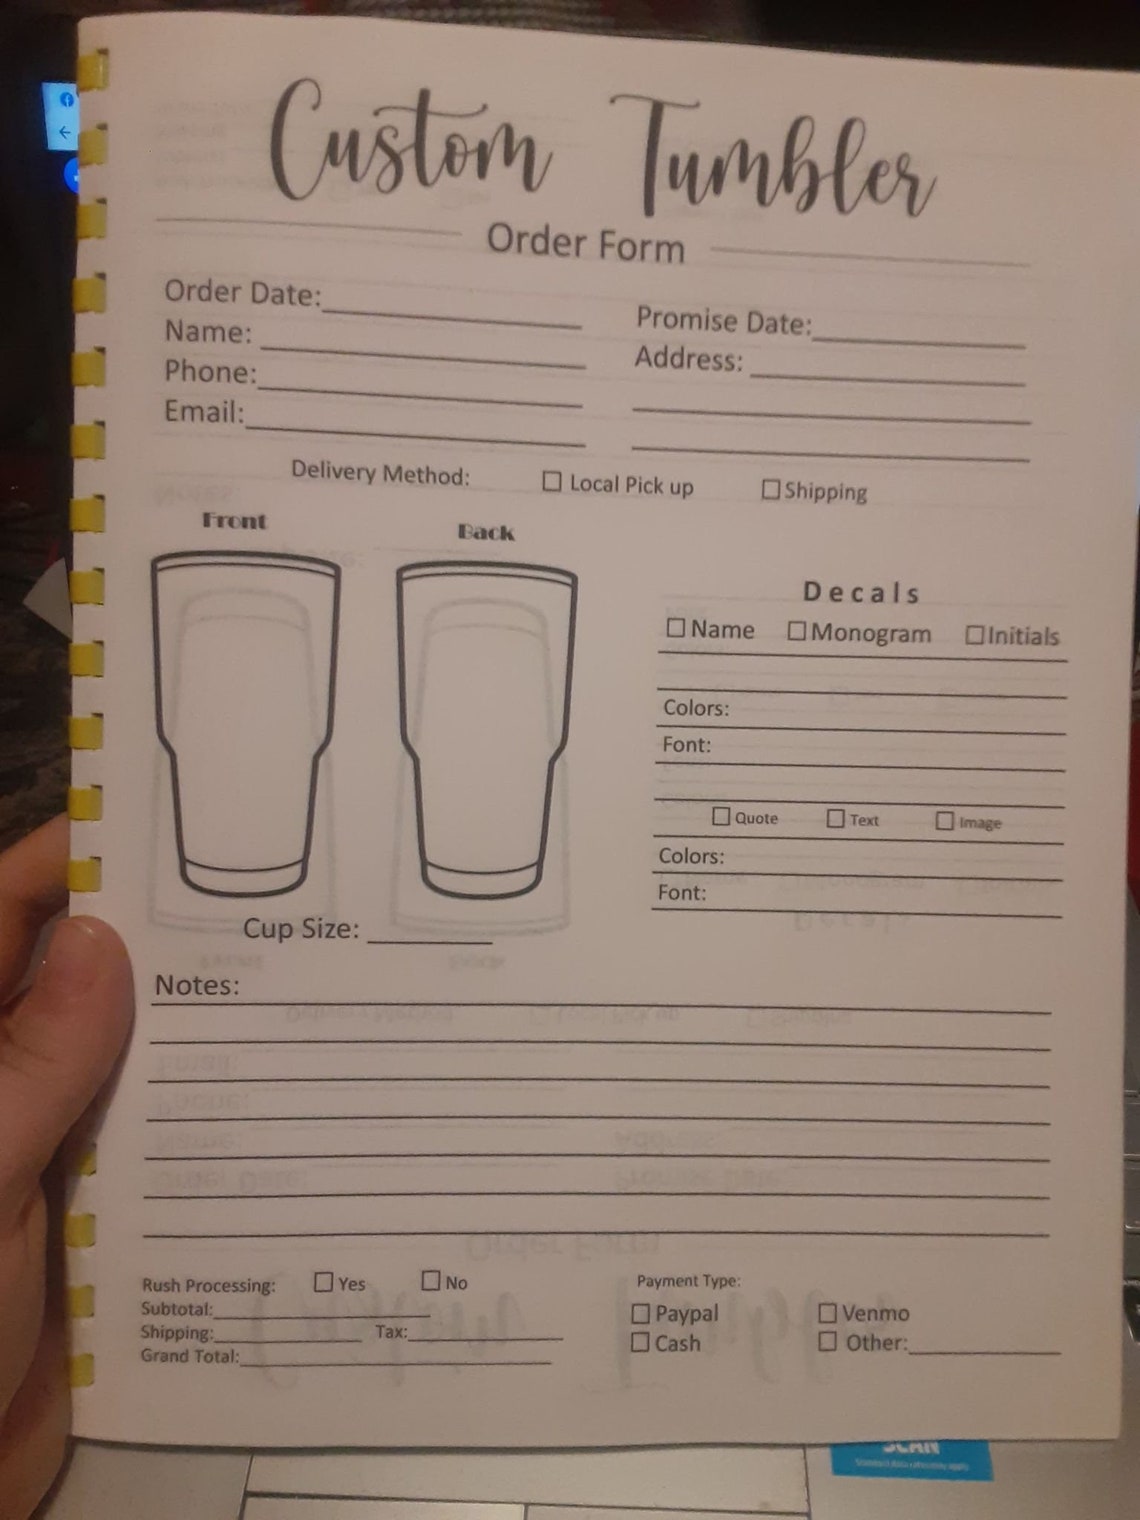 Custom Tumbler
Order Form
Order Date:
Name:
Phone:
Email:
Promise Date:
Address:
Delivery Method: Local Pick up Shipping
Front Back
Decals
Name Monogram Initials
Colors:
Font:
Quote Text Image
Colors:
Font:
Cup Size:
Notes:
Rush Processing: Yes No
Subtotal:
Shipping: Tax:
Grand Total:
Payment Type:
Paypal Venmo
Cash Other:
SCAN